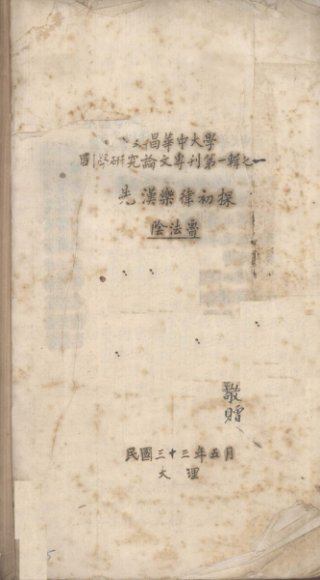 武昌華中大學
國學研究論文專刊第一輯之一
先漢樂律初探
陰法魯
敬贈
民國三十三年五月
大理
5